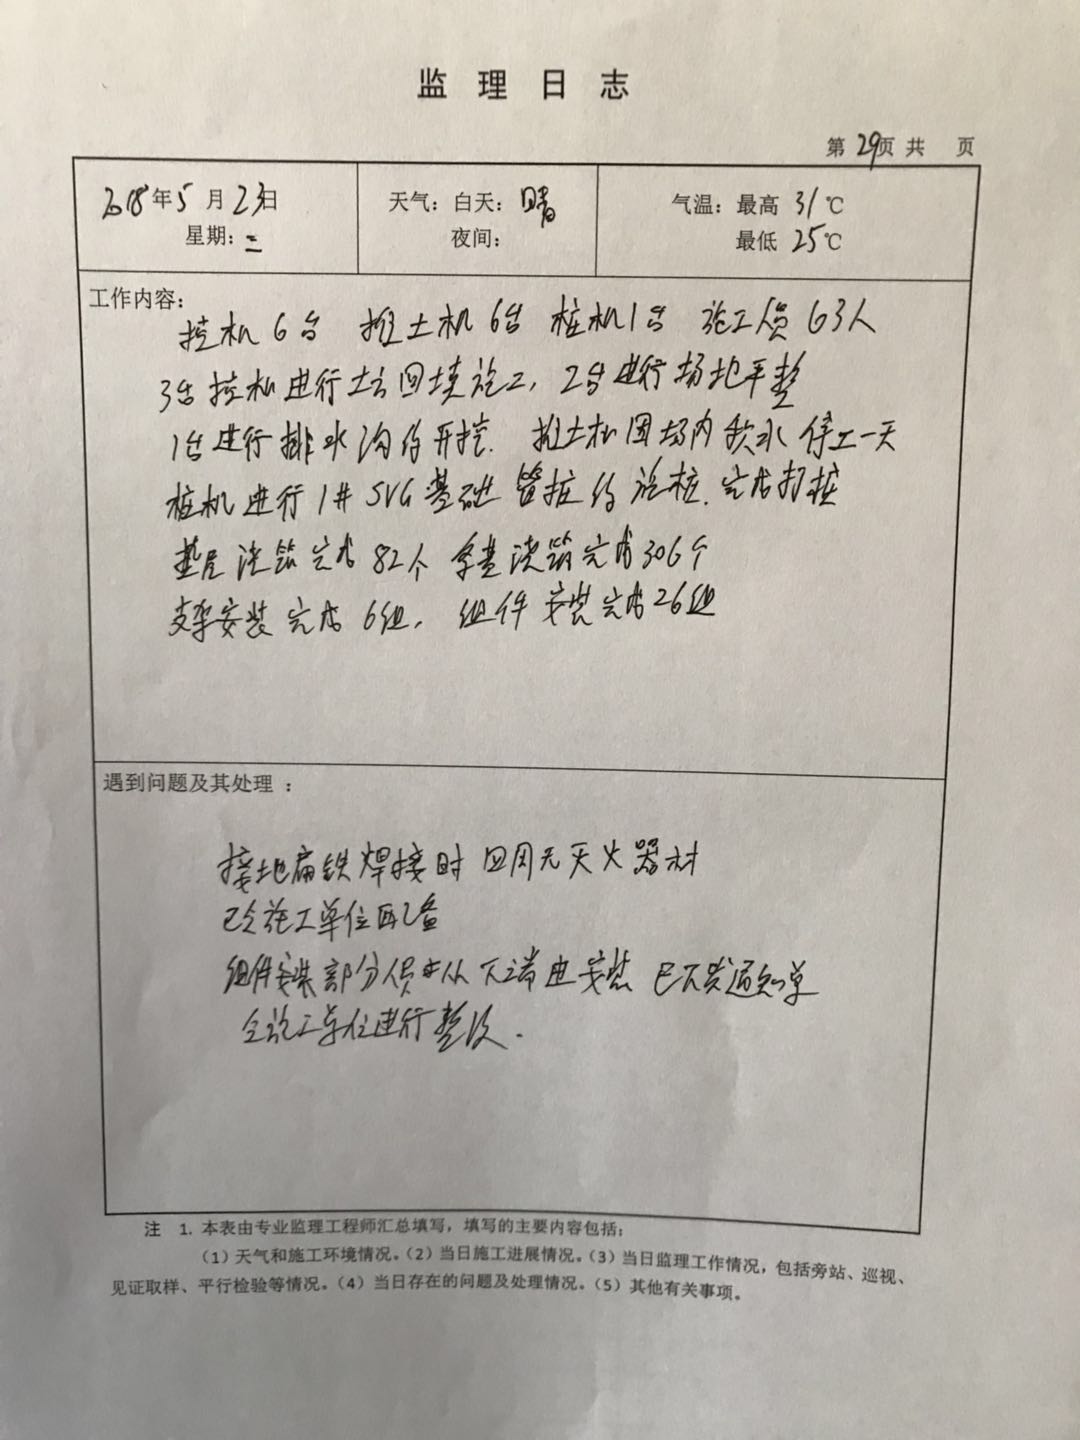 监理日志
第29页 共 页
2018年5月23日
星期：三
天气：白天：晴
夜间：
气温：最高 31℃
最低 25℃
工作内容：
挖机6台 推土机6台 桩机1台 施工员63人
3台挖机进行土方回填施工，2台进行场地平整
1台进行排水沟的开挖. 推土机因场内积水停工一天
桩机进行1#SVG基础管桩的施桩. 完成打桩
垫层浇筑完成82个 浇筑完成306个
支架安装完成6组， 组件安装完成26组
遇到问题及其处理 ：
接地扁铁焊接时四周无灭火器材
已令施工单位配备
组件安装部分人员未从下端进安装 已下发通知单
令施工单位进行整改.
注 1. 本表由专业监理工程师汇总填写，填写的主要内容包括：
（1）天气和施工环境情况。（2）当日施工进展情况。（3）当日监理工作情况，包括旁站、巡视、
见证取样、平行检验等情况。（4）当日存在的问题及处理情况。（5）其他有关事项。